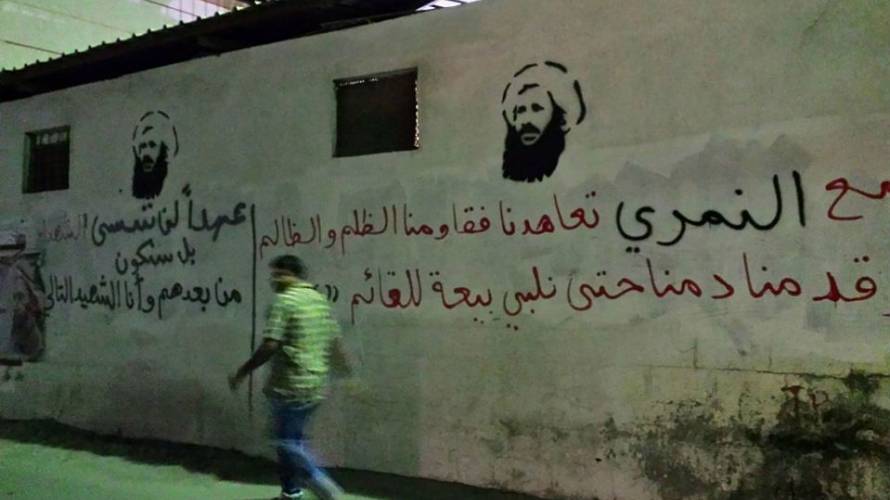 مع النمري تعاهدنا فقاومنا الظلم والظالم
وقد منا دمنا حتى نلبي بيعة للقائم »
عهداً لن ننسى الشهداء
بل سنكون
من بعدهم وأنا الشهيد التالي